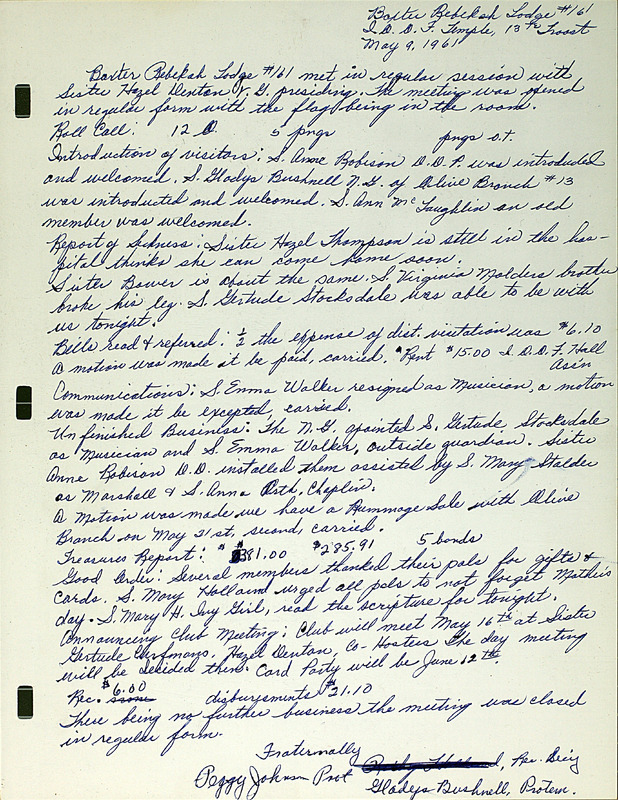 Baxter Rebekah Lodge #161
I.O.O.F. Temple, 13th Troost
May 9, 1961
Baxter Rebekah Lodge #161 met in regular session with
Sister Hazel Denton N.G. presiding. The meeting was opened
in regular form with the flag being in the room.
Roll Call: 12 O. 5 pngs pngs o.t.
Introduction of visitors: S. Anne Robison D.D.P. was introduced
and welcomed. S. Gladys Bushnell N.G. of Olive Branch #13
was introduced and welcomed. S. Ann McLaughlin an old
member was welcomed.
Report of Sickness: Sister Hazel Thompson is still in the hos-
pital thinks she can come home soon.
Sister Bower is about the same. S. Virginia Molders brother
broke his leg. S. Gertude Stocksdale was able to be with
us tonight.
Bills read & referred: 1/2 the expense of dist. visitation was $6.10
A motion was made it be paid, carried. Rent $15.00 I.O.O.F. Hall
Asin
Communications: S. Emma Walker resigned as Musician, a motion
was made it be excepted, carried.
Unfinished Business: The N.G. apointed S. Gertude, Stocksdale
as Musician and S. Emma Walker, outside guardian. Sister
Anne Robison D.D. installed them assisted by S. Mary Stalder
as Marshall & S. Anna Orth, Chaplin.
A Motion was made we have a Rummage Sale with Olive
Branch on May 21st, second, carried.
Treasures Report: $381.00 $285.91 5 bonds
Good Order: Several members thanked their pals for gifts &
cards. S. Mary Holland urged all pals to not forget Mothers
day. S. Mary H. Ivy Girl, read the scripture for tonight.
Announcing Club Meeting: Club will meet May 16th at Sister
Gertrude Curfmans, Hazel Denton, Co-Hostess The day meeting
will be decided then. Card Party will be June 12th.
Rec. $6.00 disbursements $21.10
There being no further business the meeting was closed
in regular form.
Fraternally
Rec. Secy
Peggy Johnson Prot Gladys Bushnell, Protem.